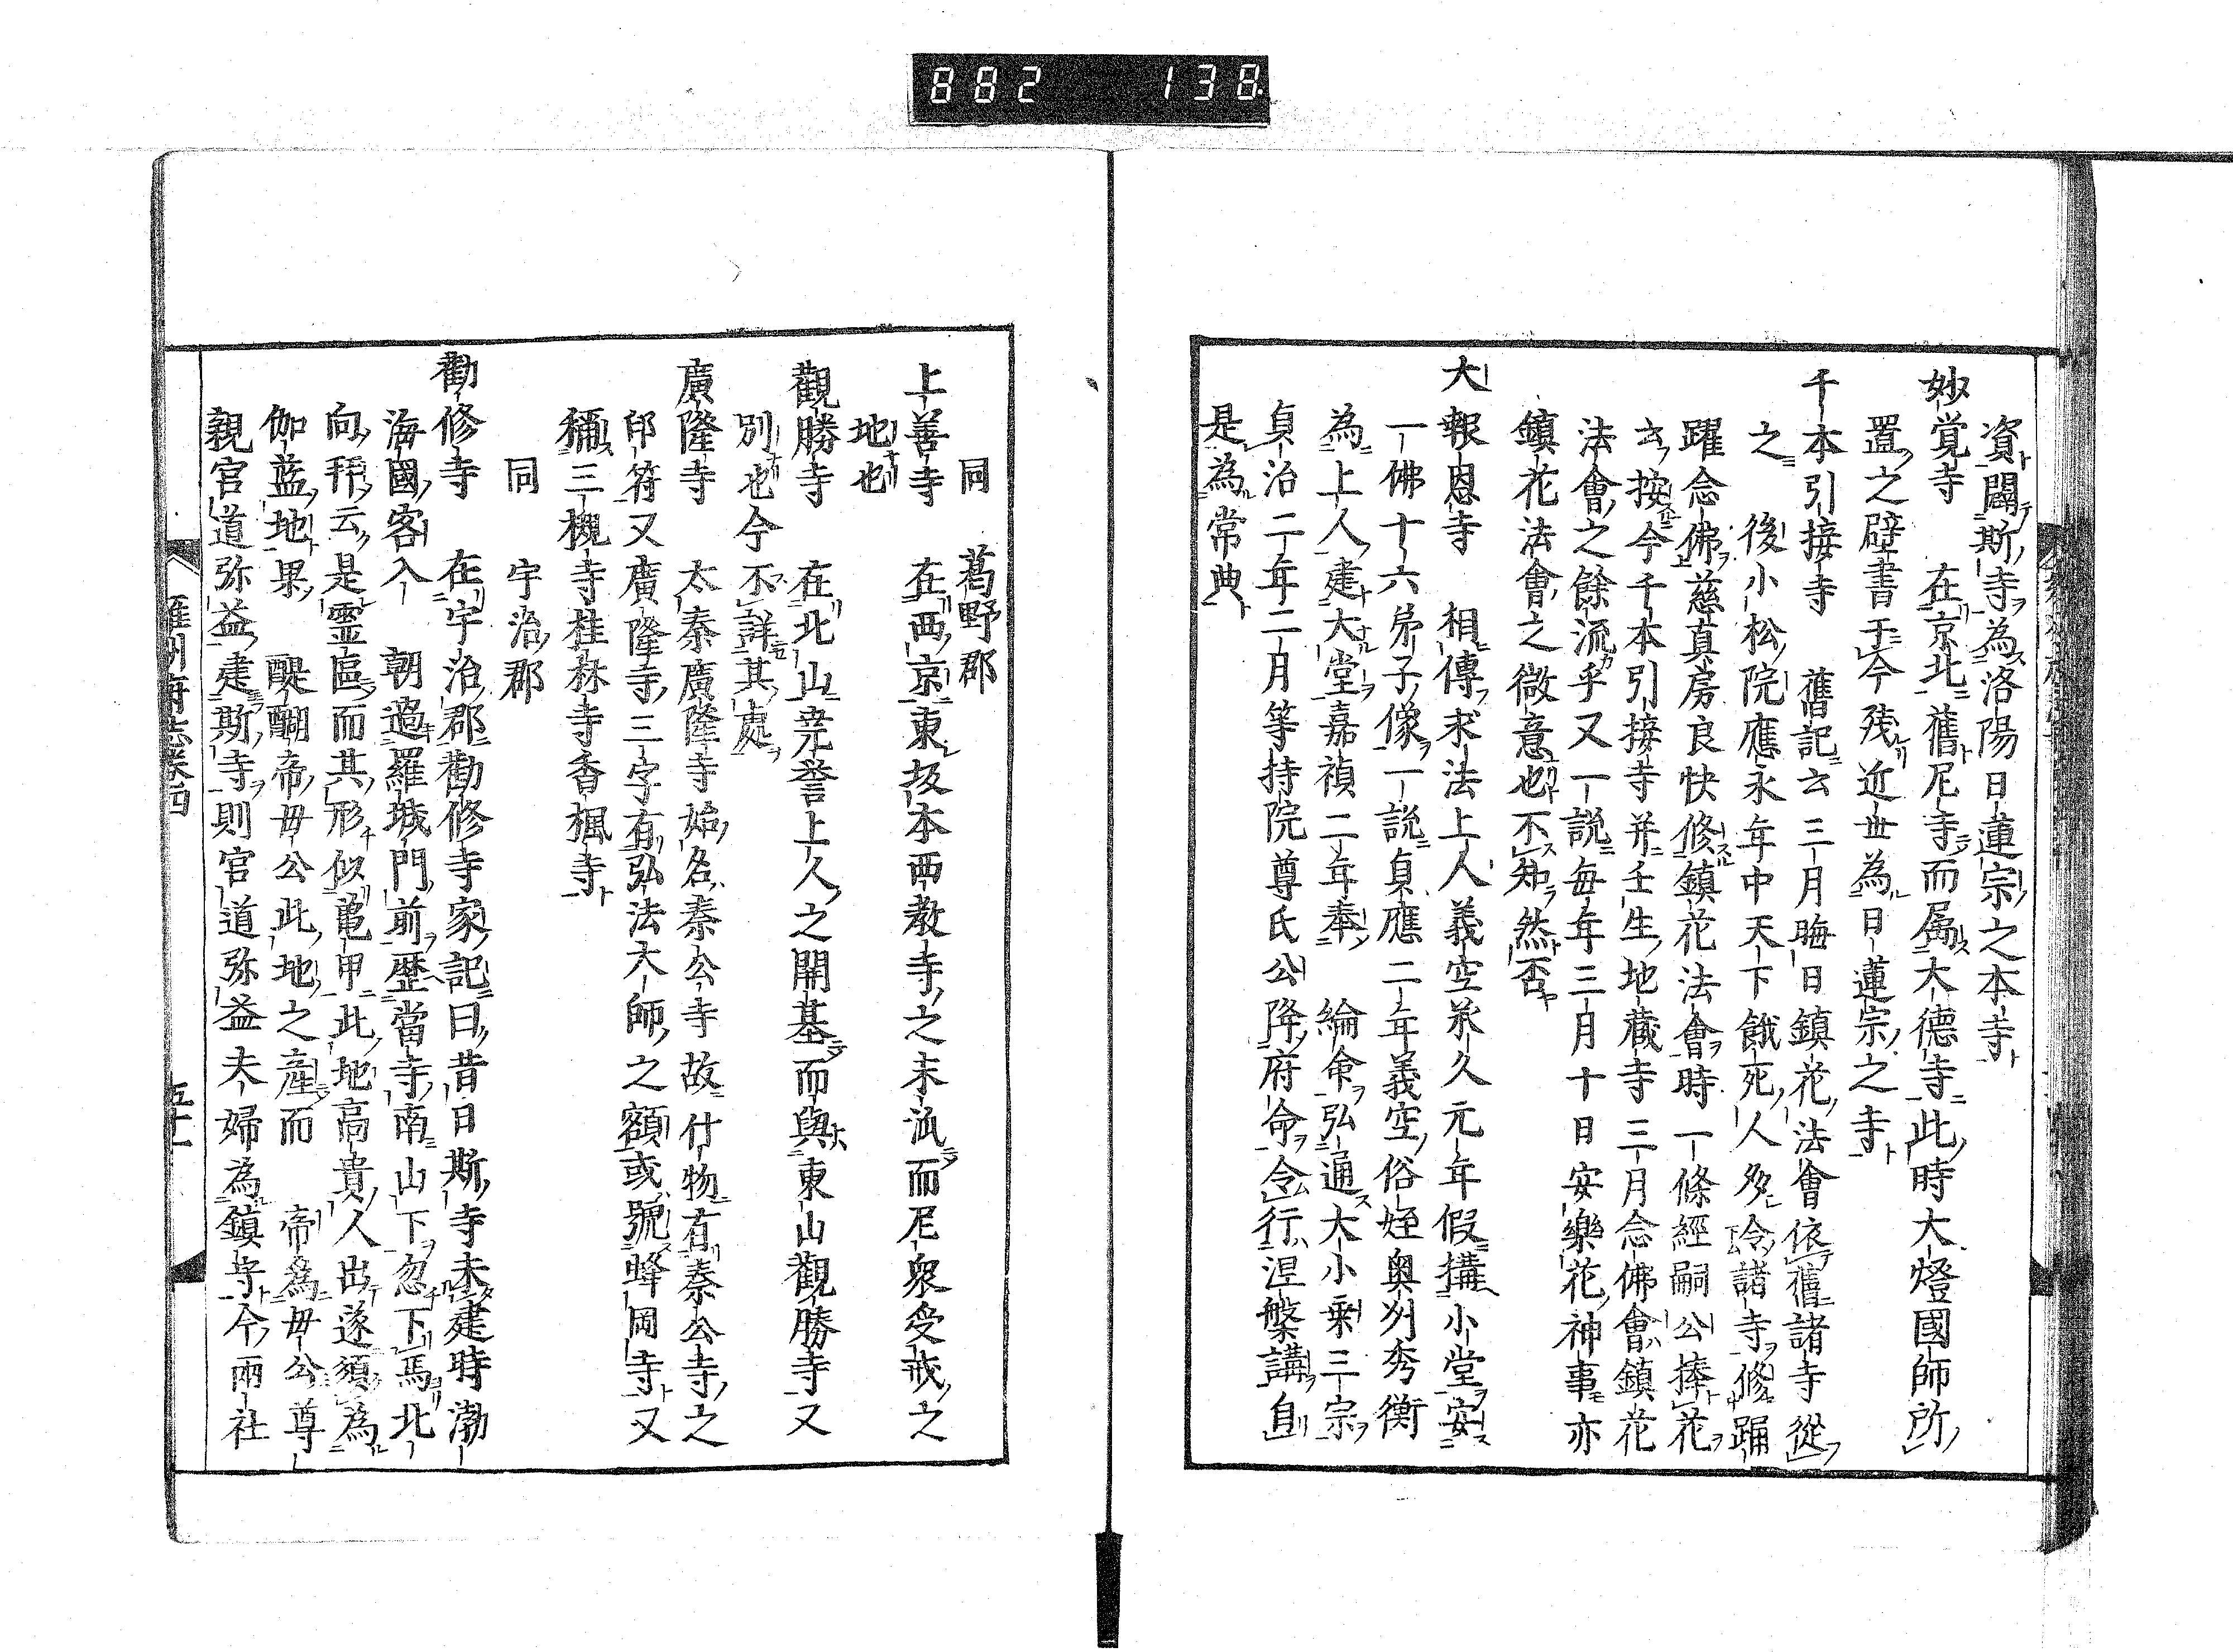 882 138
資闢斯寺為洛陽日蓮宗之本寺
妙覚寺 在京北舊尼寺而属大德寺此時大燈國師所
置之壁書于今残近世為日蓮宗之寺
千本引接寺 舊記云三月晦日鎮花法會依舊諸寺從
之 後小松院應永年中天下餓死人多令諸寺修踊
躍念佛慈真房良快修鎮花法會時一條經嗣公捧花
云按今千本引接寺并壬生地蔵寺三月念佛會鎮花
法會之餘流乎又一說每年三月十日安樂花神事亦
鎮花法會之微意也不知然否
大報恩寺 相傳求法上人義空承久元年假搆小堂安
一佛十六弟子像一說貞應二年義空俗姪奥州秀衡
為上人建大堂嘉禎二年奉 綸命弘通大小乗三宗
貞治二年二月等持院尊氏公降府命令行涅槃講自
是為常典
同 葛野郡
上善寺 在西京東坂本西教寺之末派而尼衆受戒之
地也
觀勝寺 在北山尭誉上人之開基而與東山觀勝寺又
別也今不詳其處
廣隆寺 太秦廣隆寺始名秦公寺故什物有秦公寺之
印符又廣隆寺三字有弘法大師之額或號蜂岡寺又
稱三槻寺桂林寺香楓寺
同 宇治郡
勸修寺 在宇治郡勸修寺家記曰昔日斯寺未建時渤
海國客入 朝過羅城門前歴當寺南山下忽下馬北
向拜云是靈區而其形似龜甲此地高貴人出遂須為
伽藍地果 醍醐帝毋公此地之産而 帝為毋公尊
親宮道弥益建斯寺則宮道弥益夫婦為鎮守今兩社
雍州府志巻四 五十一